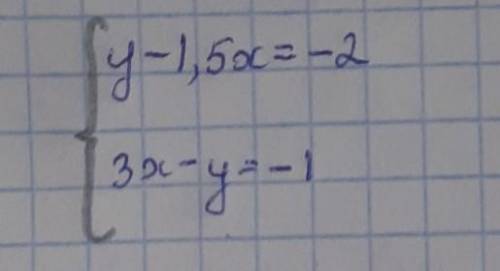 y - 1,5x = -2
3x - y = -1